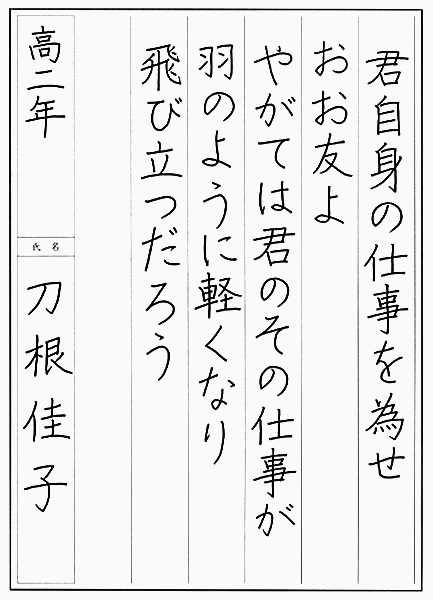 君自身の仕事を為せ
おお友よ
やがては君のその仕事が
羽のように軽くなり
飛び立つだろう
高二年
氏名
刀根佳子